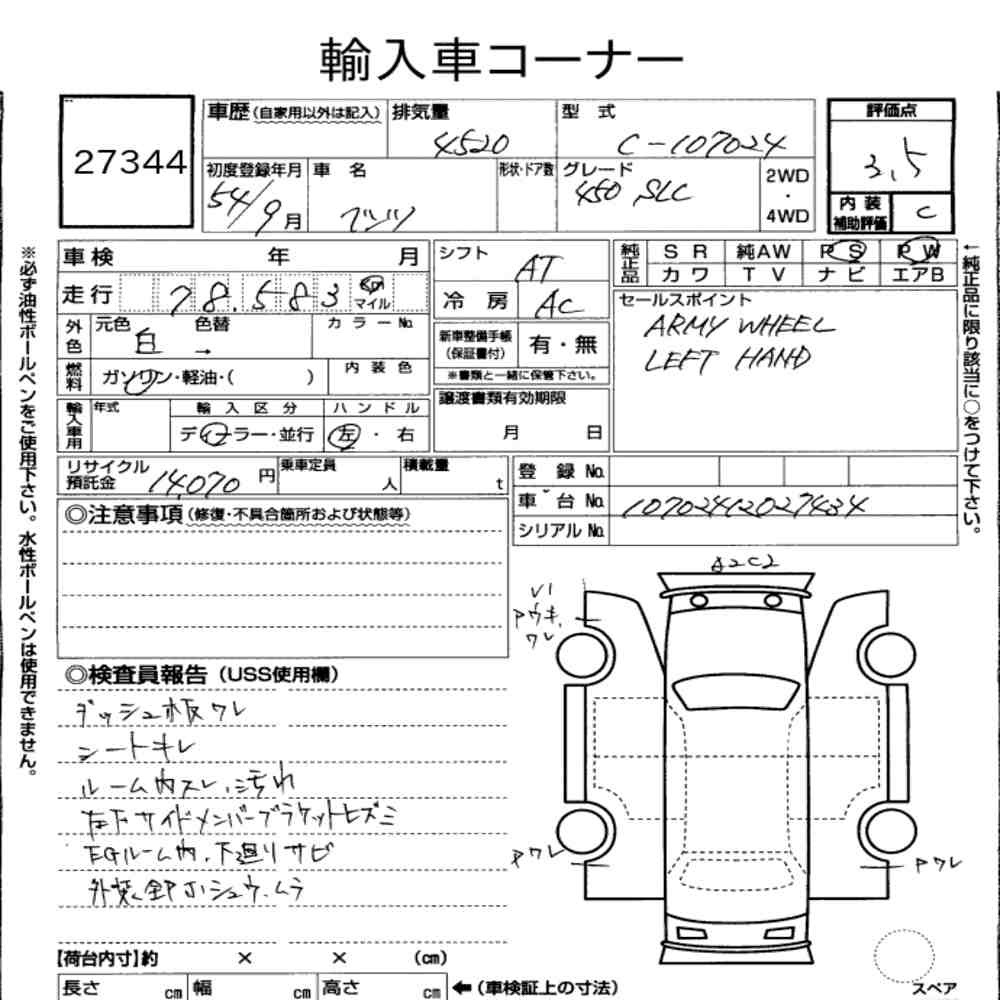 輸入車コーナー
27344
車歴(自家用以外は記入) 排気量 4520 型式 C-107024
初度登録年月 54/9月 車名 ベンツ 形状・ドア数 グレード 450 SLC 2WD・4WD
評価点 3,5
内装補助評価 C
車検 年 月
走行 78,583 km マイル
外色 元色 白 色替 → カラーNo.
燃料 ガソリン・軽油・( ) 内装色
輸入車用 年式 輸入区分 ディーラー・並行 ハンドル 左・右
シフト AT
冷房 AC
新車整備手帳(保証書付) 有・無
※書類と一緒に保管下さい。
譲渡書類有効期限 月 日
純正品 SR 純AW PS PW
カワ TV ナビ エアB
セールスポイント
ARMY WHEEL
LEFT HAND
リサイクル預託金 14,070円 乗車定員 人 積載量 t
登録No.
車台No. 10702412027434
シリアルNo.
◎注意事項(修復・不具合箇所および状態等)
◎検査員報告(USS使用欄)
ダッシュ板ワレ
シートキレ
ルーム内スレ、汚れ
左下サイドメンバーブラケットヒズミ
EGルーム内、下廻りサビ
外装、小シュウ、ムラ
A2C2
V1
Pウキ、
ワレ
Pワレ
Pワレ
スペア
【荷台内寸】約 × × (cm)
長さ cm 幅 cm 高さ cm ←(車検証上の寸法)
※必ず油性ボールペンをご使用下さい。水性ボールペンは使用できません。
←純正品に限り該当に○をつけて下さい。